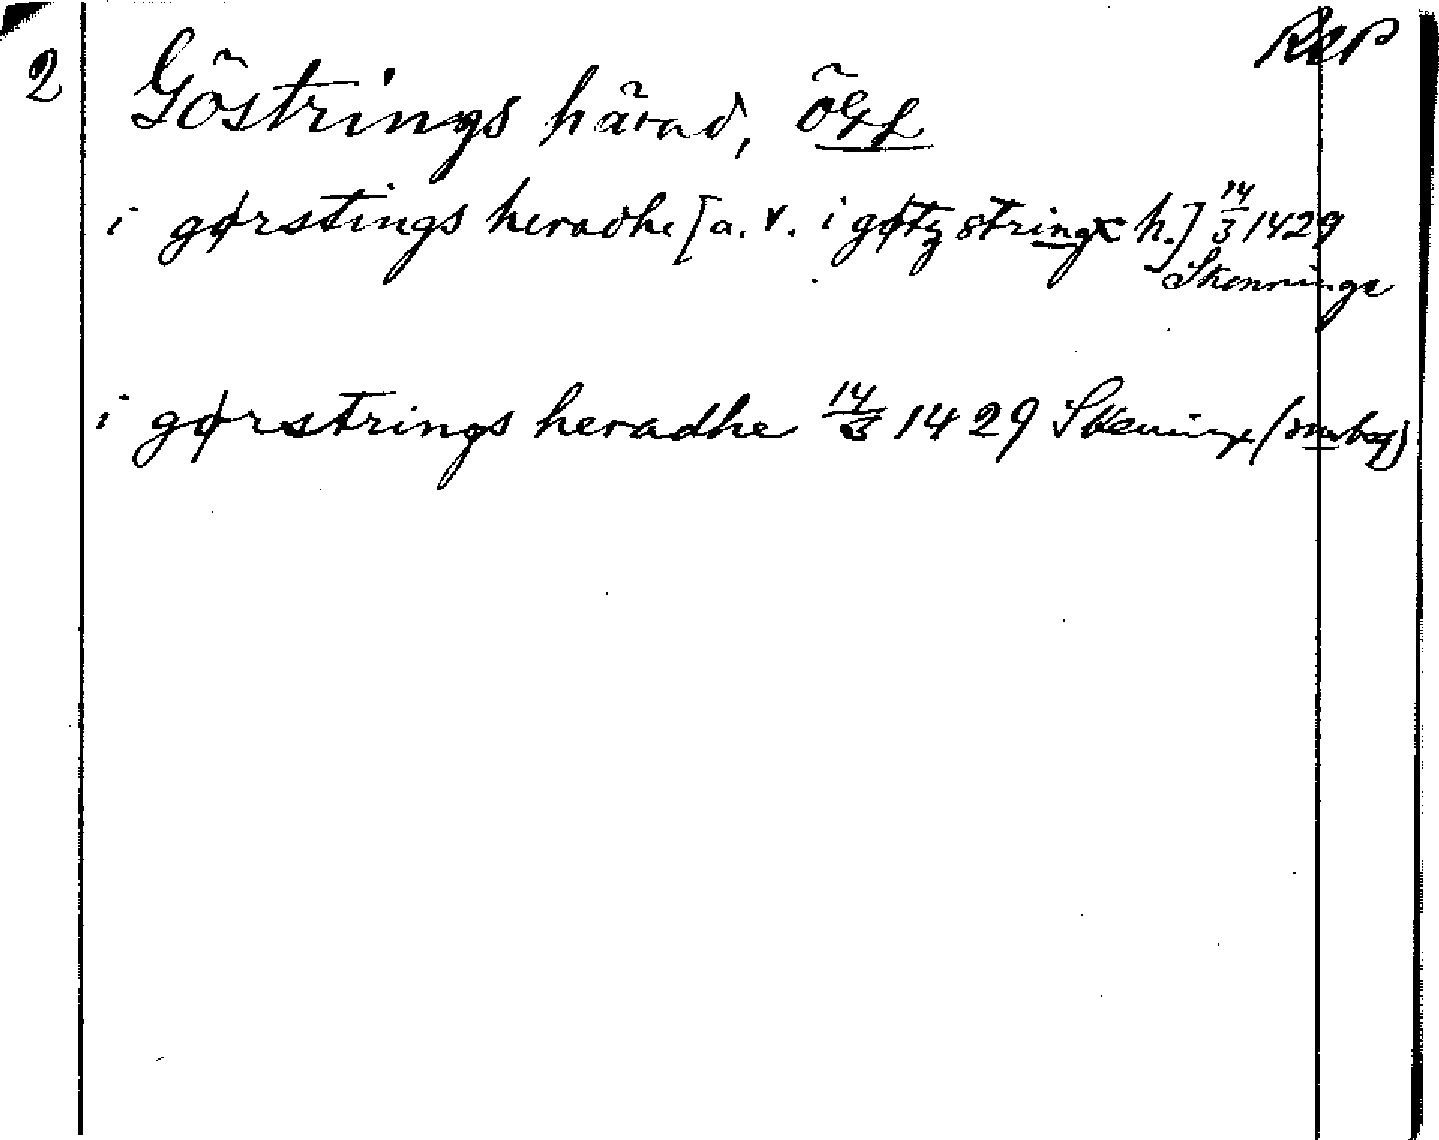 2
Göstrings härad, Ögl
RAP
i gørstings heradhe [a. v. i gøtzstringx h.] 14/3 1429
Skenninge
i gørstrings heradhe 14/3 1429 Skeninge